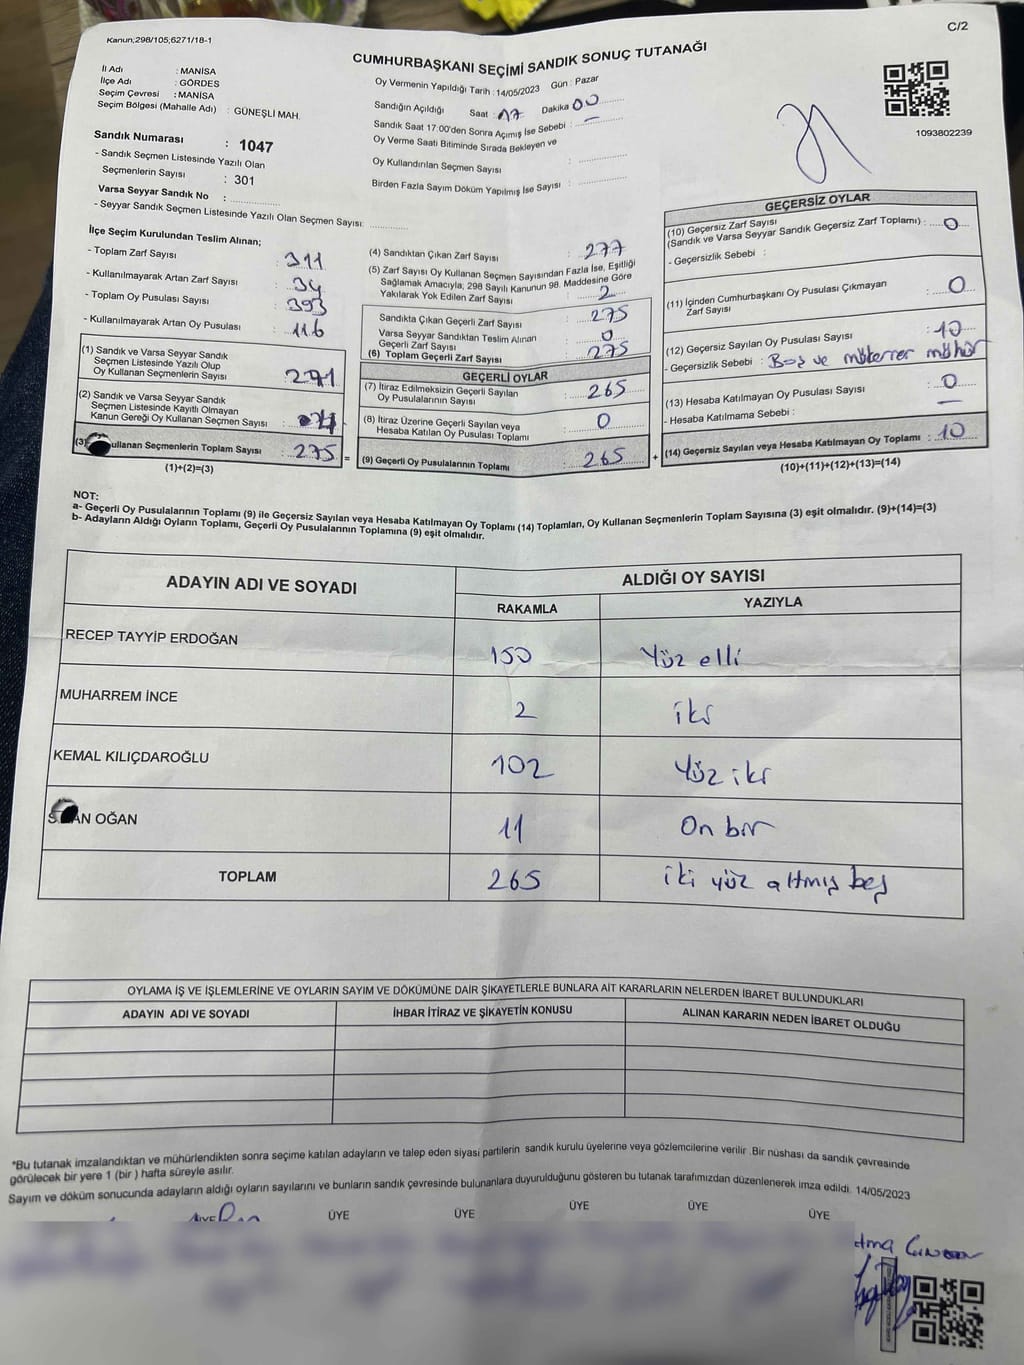 Kanun;298/105;6271/18-1
C/2
CUMHURBAŞKANI SEÇİMİ SANDIK SONUÇ TUTANAĞI
İl Adı : MANİSA
İlçe Adı : GÖRDES
Seçim Çevresi : MANİSA
Seçim Bölgesi (Mahalle Adı) : GÜNEŞLİ MAH.
Sandık Numarası : 1047
- Sandık Seçmen Listesinde Yazılı Olan
Seçmenlerin Sayısı : 301
Varsa Seyyar Sandık No :
- Seyyar Sandık Seçmen Listesinde Yazılı Olan Seçmen Sayısı:
Oy Vermenin Yapıldığı Tarih : 14/05/2023 Gün : Pazar
Sandığın Açıldığı Saat : 17 Dakika 00
Sandık Saat 17:00'den Sonra Açımış İse Sebebi : –
Oy Verme Saati Bitiminde Sırada Bekleyen ve
Oy Kullandırılan Seçmen Sayısı :
Birden Fazla Sayım Döküm Yapılmış İse Sayısı :
1093802239
İlçe Seçim Kurulundan Teslim Alınan;
- Toplam Zarf Sayısı : 311
- Kullanılmayarak Artan Zarf Sayısı : 34
- Toplam Oy Pusulası Sayısı : 393
- Kullanılmayarak Artan Oy Pusulası : 116
(1) Sandık ve Varsa Seyyar Sandık
Seçmen Listesinde Yazılı Olup
Oy Kullanan Seçmenlerin Sayısı : 271
(2) Sandık ve Varsa Seyyar Sandık
Seçmen Listesinde Kayıtlı Olmayan
Kanun Gereği Oy Kullanan Seçmen Sayısı :
(3) ullanan Seçmenlerin Toplam Sayısı : 275 =
(1)+(2)=(3)
(4) Sandıktan Çıkan Zarf Sayısı : 277
(5) Zarf Sayısı Oy Kullanan Seçmen Sayısından Fazla İse, Eşitliği
Sağlamak Amacıyla, 298 Sayılı Kanunun 98. Maddesine Göre
Yakılarak Yok Edilen Zarf Sayısı : 2
Sandıkta Çıkan Geçerli Zarf Sayısı : 275
Varsa Seyyar Sandıktan Teslim Alınan
Geçerli Zarf Sayısı : 0
(6) Toplam Geçerli Zarf Sayısı : 275
GEÇERLİ OYLAR
(7) İtiraz Edilmeksizin Geçerli Sayılan
Oy Pusulalarının Sayısı : 265
(8) İtiraz Üzerine Geçerli Sayılan veya
Hesaba Katılan Oy Pusulası Toplamı : 0
(9) Geçerli Oy Pusulalarının Toplamı : 265 +
GEÇERSİZ OYLAR
(10) Geçersiz Zarf Sayısı
(Sandık ve Varsa Seyyar Sandık Geçersiz Zarf Toplamı) : 0
- Geçersizlik Sebebi :
(11) İçinden Cumhurbaşkanı Oy Pusulası Çıkmayan
Zarf Sayısı : 0
(12) Geçersiz Sayılan Oy Pusulası Sayısı : 10
- Geçersizlik Sebebi : Boş ve mükerrer mühür
(13) Hesaba Katılmayan Oy Pusulası Sayısı : 0
- Hesaba Katılmama Sebebi : –
(14) Geçersiz Sayılan veya Hesaba Katılmayan Oy Toplamı : 10
(10)+(11)+(12)+(13)=(14)
NOT:
a- Geçerli Oy Pusulalarının Toplamı (9) ile Geçersiz Sayılan veya Hesaba Katılmayan Oy Toplamı (14) Toplamları, Oy Kullanan Seçmenlerin Toplam Sayısına (3) eşit olmalıdır. (9)+(14)=(3)
b- Adayların Aldığı Oyların Toplamı, Geçerli Oy Pusulalarının Toplamına (9) eşit olmalıdır.
ADAYIN ADI VE SOYADI ALDIĞI OY SAYISI
RAKAMLA YAZIYLA
RECEP TAYYİP ERDOĞAN 150 Yüz elli
MUHARREM İNCE 2 iki
KEMAL KILIÇDAROĞLU 102 Yüz iki
S AN OĞAN 11 On bir
TOPLAM 265 iki yüz altmış beş
OYLAMA İŞ VE İŞLEMLERİNE VE OYLARIN SAYIM VE DÖKÜMÜNE DAİR ŞİKAYETLERLE BUNLARA AİT KARARLARIN NELERDEN İBARET BULUNDUKLARI
ADAYIN ADI VE SOYADI İHBAR İTİRAZ VE ŞİKAYETİN KONUSU ALINAN KARARIN NEDEN İBARET OLDUĞU
*Bu tutanak imzalandıktan ve mühürlendikten sonra seçime katılan adayların ve talep eden siyasi partilerin sandık kurulu üyelerine veya gözlemcilerine verilir .Bir nüshası da sandık çevresinde
görülecek bir yere 1 (bir ) hafta süreyle asılır.
Sayım ve döküm sonucunda adayların aldığı oyların sayılarını ve bunların sandık çevresinde bulunanlara duyurulduğunu gösteren bu tutanak tarafımızdan düzenlenerek imza edildi. 14/05/2023
ÜYE ÜYE ÜYE ÜYE ÜYE